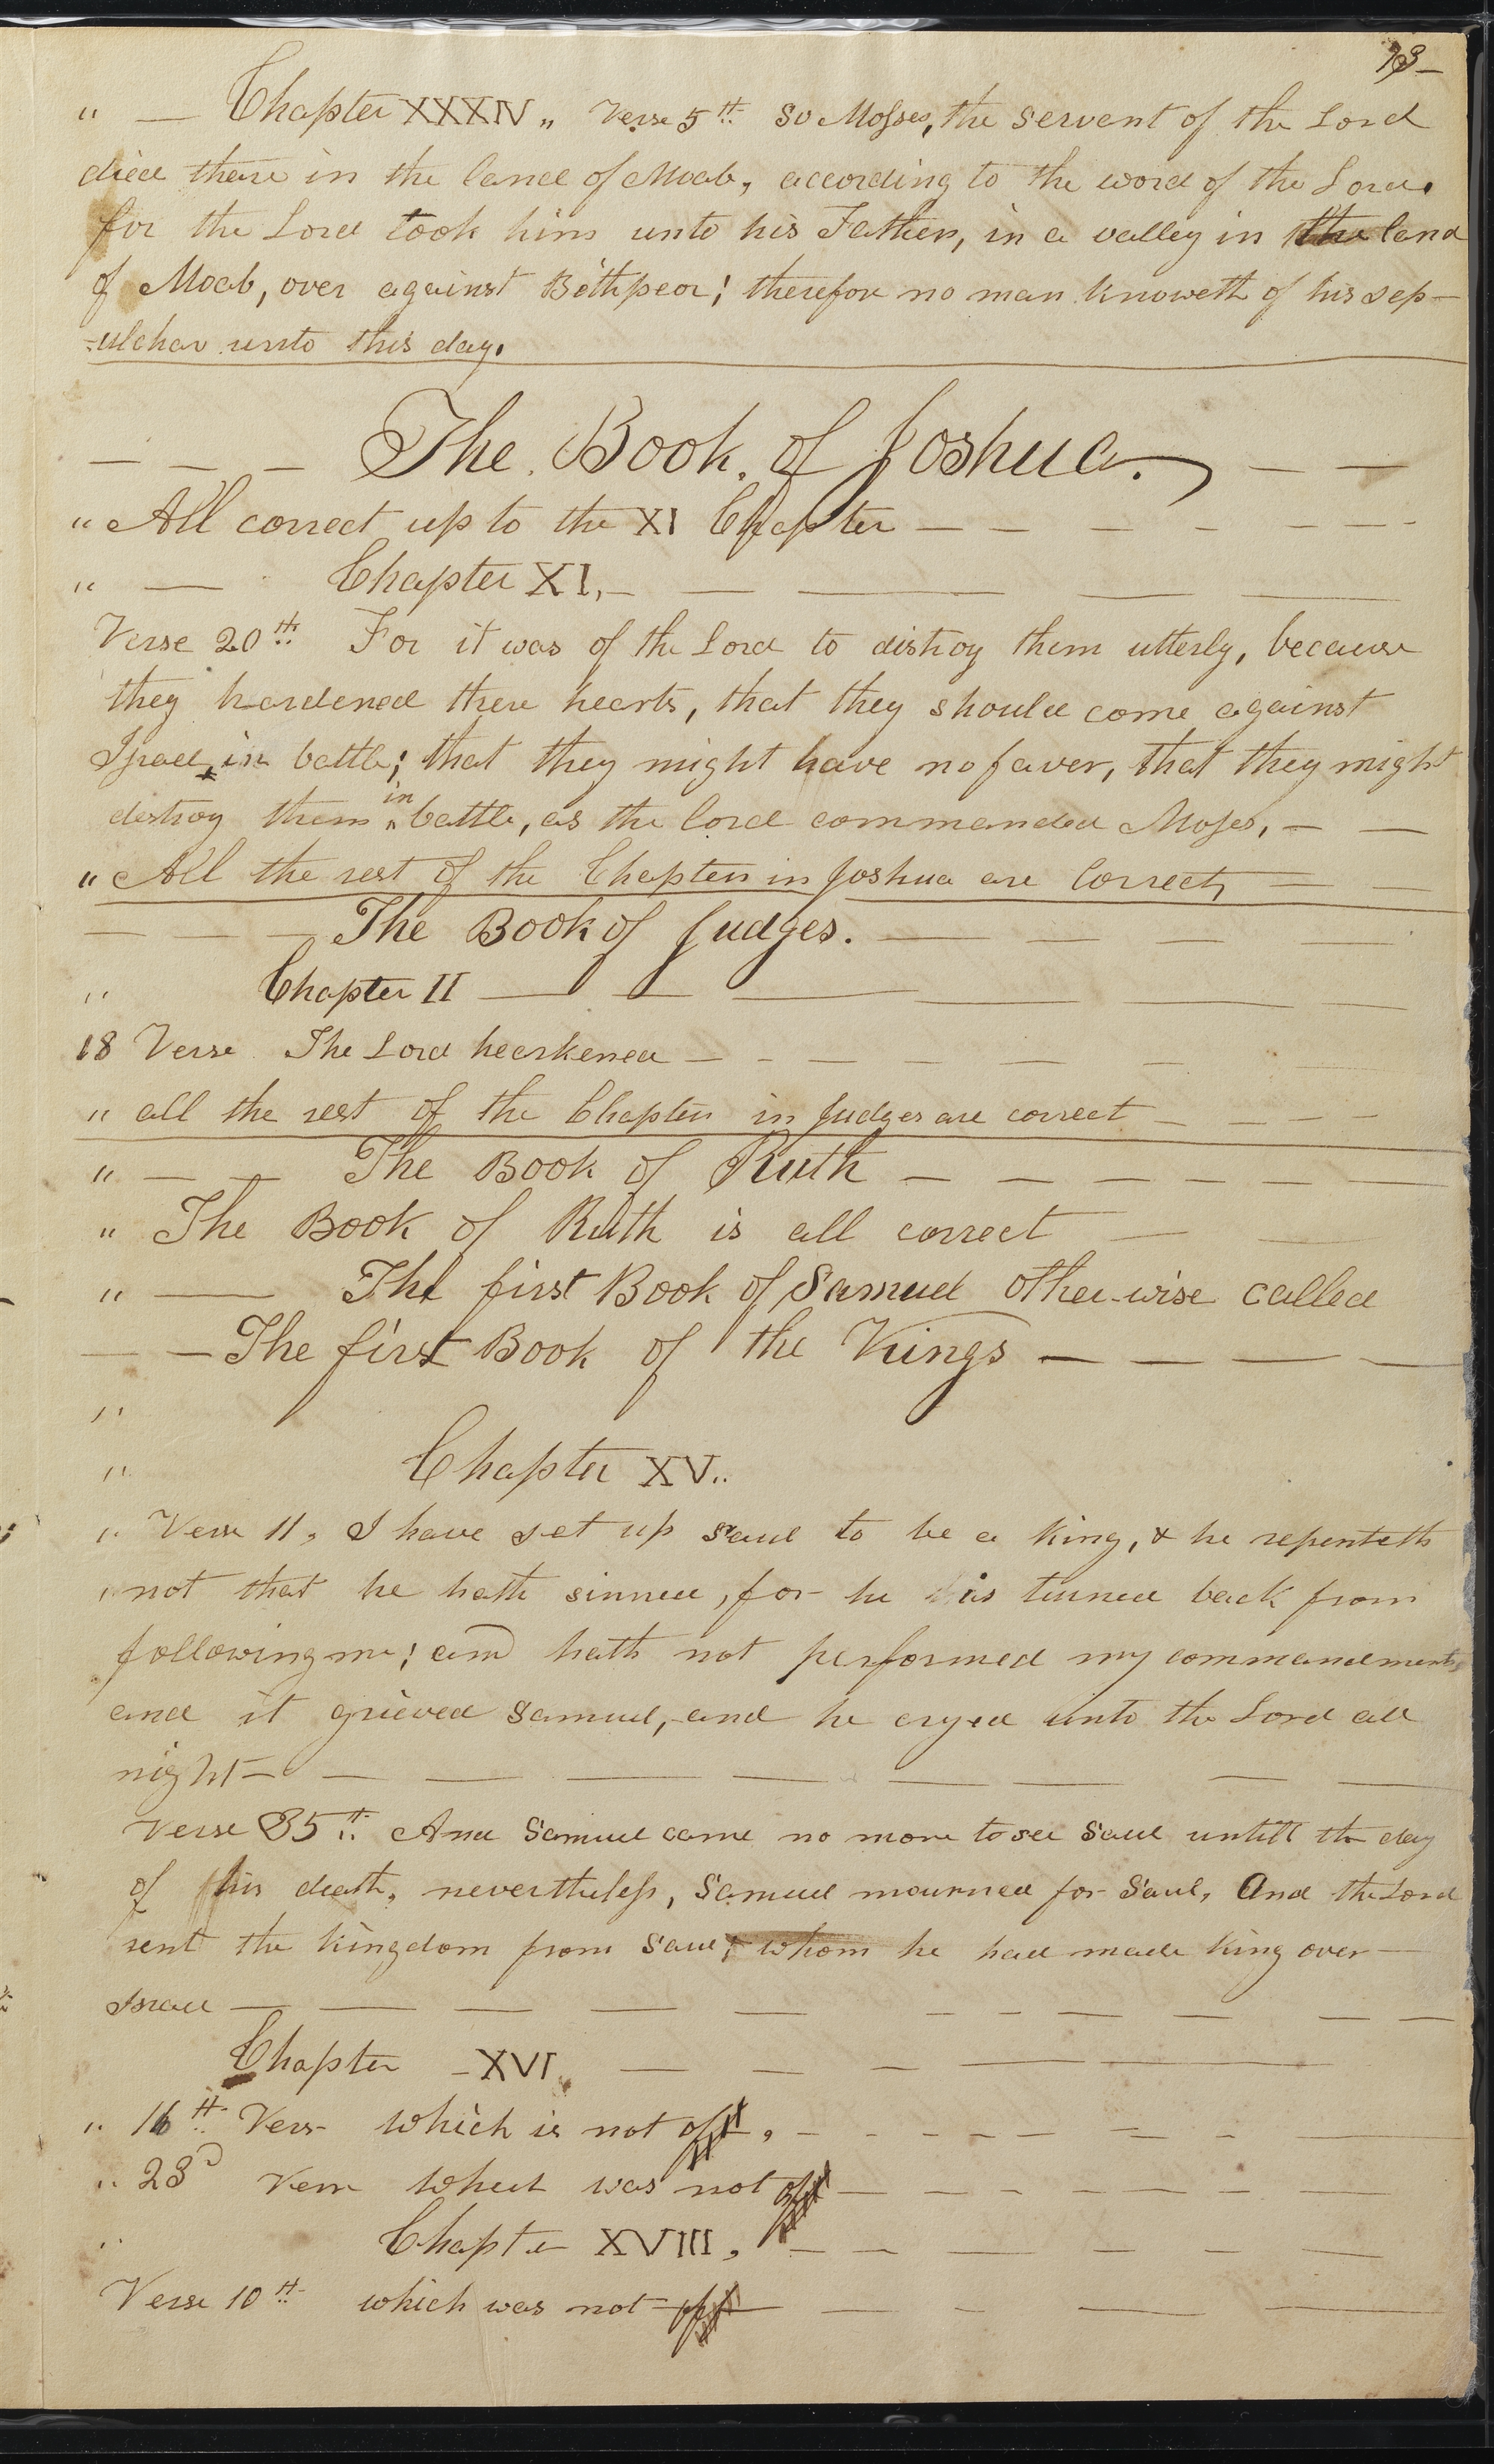 73–
" — Chapter XXXIV „ Verse 5th So Mosses, the servent of the Lord
died there in the land of Moab, according to the word of the Lord.
for the Lord took him unto his Fathers, in a valley in the land
of Moab, over against Bethpeor; therefore no man knoweth of his sep-
-ulcher unto this day.
— — — The Book of Joshua. — —
" All correct up to the XI Chapter — — — — — — -
" — Chapter XI, — — — — —
Verse 20th For it was of the Lord to distroy them utterly, because
they hardened there hearts, that they should come against
Israel, in battle; that they might have no faver, that they might
destroy them in battle, as the lord commanded Moses, — —
" All the rest of the Chapters in Joshua are Correct, — —
— — — The Book of Judges. — — — —
" Chapter II — — — — — —
18 Verse The Lord hearkened — - — — — —
" all the rest of the Chapters in Judges are correct — — — —
" — — The Book of Ruth — — — — — — —
" The Book of Ruth is all correct — —
" — The first Book of Samuel otherwise called
— — The first Book of the Kings — — — —
"
" Chapter XV..
" Verse 11, I have set up Saul to be a king, & he repenteth
" not that he hath sinned, for he is turned back from
following me; and hath not performed my commandments
and it grieved Samuel, and he cryed unto the Lord all
night — — — — — — — — —
Verse 35th And Samuel came no more to see Saul untill the day
of his death, nevertheless, Samuel mourned for Saul, And the Lord
rent the kingdom from Saul, whom he had made king over —
Israel — — — — — - - — — — —
Chapter – XVI, — — — — —
" 16th Vers- which is not of, – - - - - — - —
" 23d Vers which was not of — — - - — — - —
" Chapter XVIII, — — — — — —
Verse 10th which was not of — — - — —